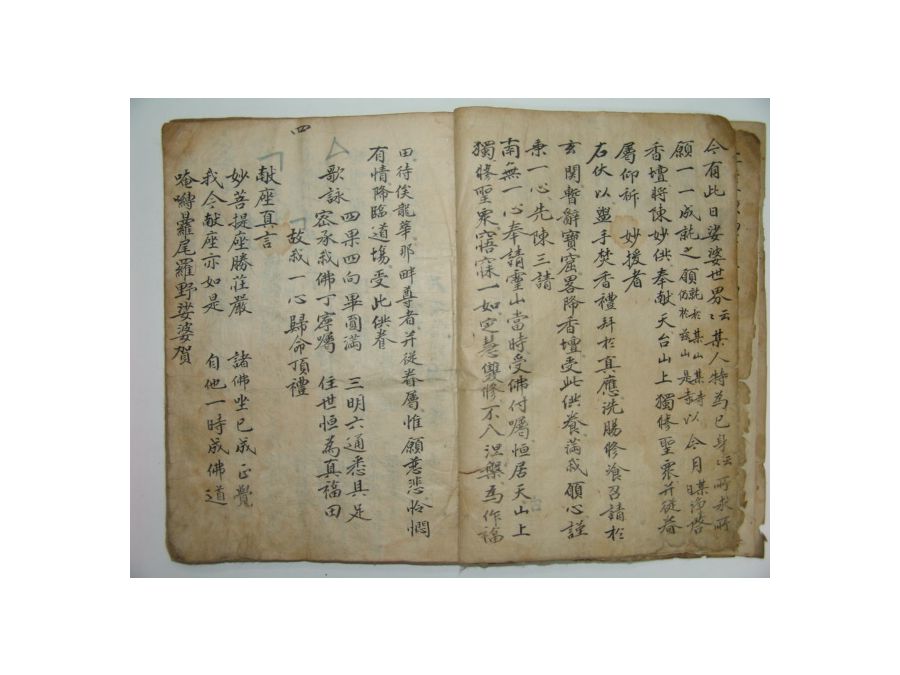 今有此日娑婆世界云云某人特為己身云云所求所
願一一成就之願就於某山某寺以仍於玆山是寺以今月某日淨啓
香壇將陳妙供奉献天台山上獨修聖衆并從眷
屬仰祈 妙援者
右伏以爇手焚香禮拜於真應洗膓修湌召請於
玄関暫辭寶窟畧降香壇受此供養滿我願心謹
秉一心先陳三請
南無一心奉請靈山當時受佛付囑恒居天山上
獨修聖衆寤寐一如定慧雙修不入涅槃為作福
田待俟龍華那畔尊者并從眷屬惟願慈悲怜憫
有情降臨道塲受此供養
四果四向畢圓滿 三明六通悉具足
歌詠 密承我佛丁寧囑 住世恒為真福田
故我一心歸命頂禮
四
献座真言
妙菩提座勝莊嚴 諸佛坐已成正覺
我今献座亦如是 自他一時成佛道
唵嚩羅尾羅野娑婆賀